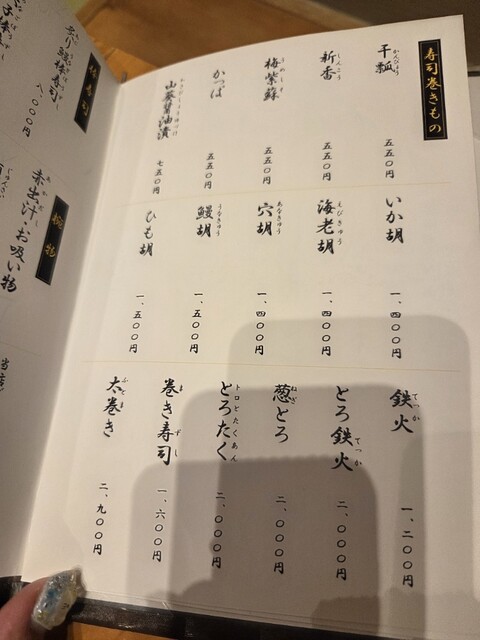 寿司巻きもの
干瓢 かんぴょう 五五〇円
新香 しんこう 五五〇円
梅紫蘇 うめしそ 五五〇円
かっぱ 五五〇円
山葵醤油漬 七五〇円
いか胡 一、四〇〇円
海老胡 えびきゅう 一、四〇〇円
穴胡 あなきゅう 一、四〇〇円
鰻胡 うなきゅう 一、五〇〇円
ひも胡 一、五〇〇円
鉄火 てっか 一、二〇〇円
とろ鉄火 てっか 二、〇〇〇円
葱とろ ねぎ 二、〇〇〇円
とろたく トロとたくあん 二、〇〇〇円
巻き寿司 まきずし 一、六〇〇円
太巻き ふとまき 二、九〇〇円
寿司
八、〇〇〇円
物
赤出汁・お吸い物